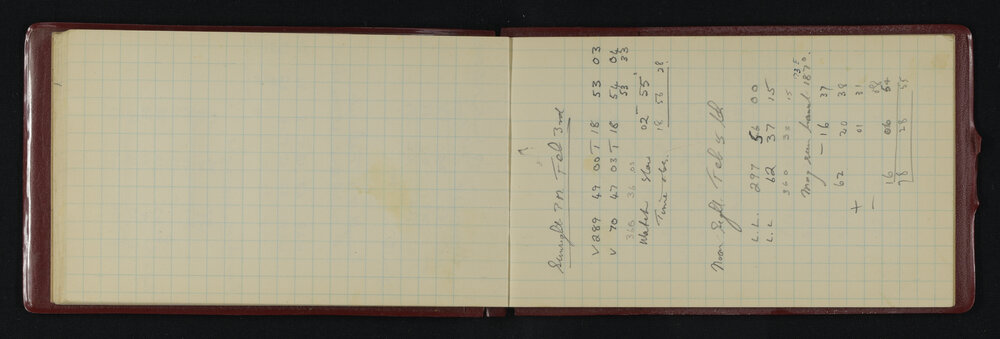 Sunsight PM Feb 3rd
V 289 49 00 T 18 53 03
V 70 47 03 T 18 54 04
360 36 03 53 33
Watch slow 02 55
Time obs. 18 56 28
Noon Sight Feb 5th
L.L. 297 56 00
L.L. 62 37 15
360 33 15
Mag 187°
- 16 37
62 20 38
+ 01 31
- 16 06 54
78 28 55